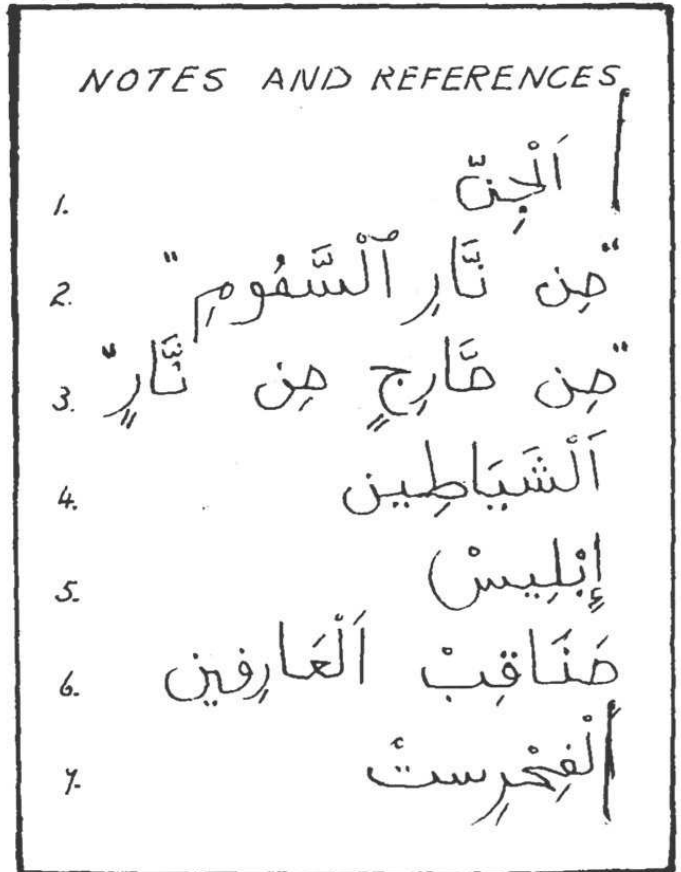 NOTES AND REFERENCES
1. اَلْجِنّ
2. "مِن نَّارِ ٱلْسَّمُومِ"
3. "مِن مَّارِجٍ مِن نَّارٍ"
4. اَلْشَيَاطِين
5. إِبْلِيسْ
6. مَنَاقِبْ اَلْعَارِفِين
7. اَلْفِهْرِستْ